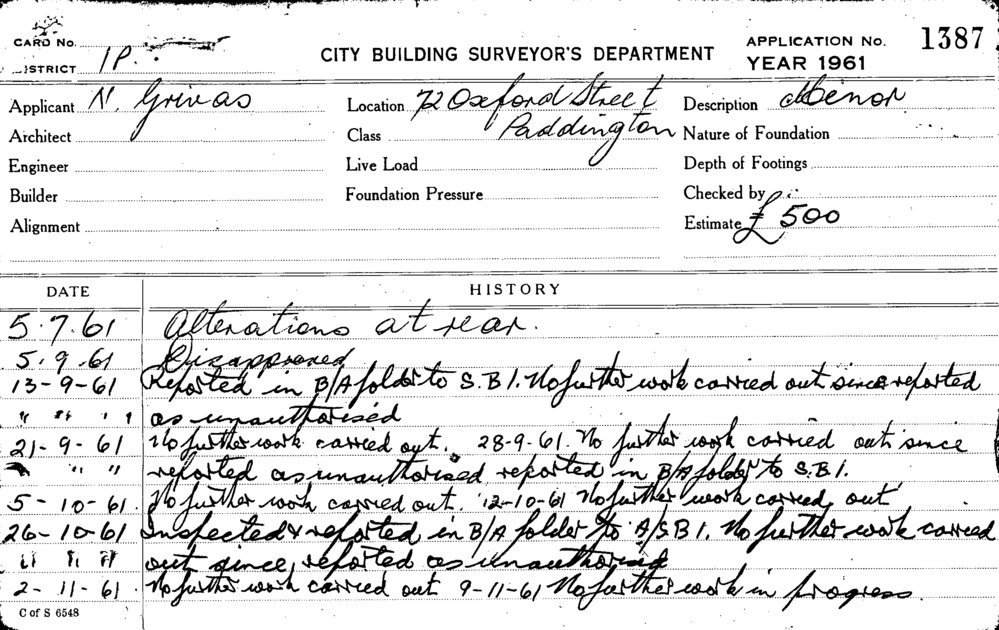 CARD No.
DISTRICT 1P.
CITY BUILDING SURVEYOR'S DEPARTMENT
APPLICATION No. 1387
YEAR 1961
Applicant N. Grivas
Location 72 Oxford Street
Paddington
Description Minor
Architect
Class
Nature of Foundation
Engineer
Live Load
Depth of Footings
Builder
Foundation Pressure
Checked by
Alignment
Estimate £ 500
DATE HISTORY
5.7.61 Alterations at rear.
5.9.61 Disapproved
13-9-61 Reported in B/A folder to S.B.I. No further work carried out since reported
" " " " as unauthorised
21-9-61 No further work carried out. 28-9-61. No further work carried out since
" " " reported as unauthorised reported in B/A folder to S.B.I.
5-10-61. No further work carried out. 12-10-61 No further work carried out
26-10-61 Inspected & reported in B/A folder to A/S.B.I. No further work carried
" " " out since reported as unauthorised
2-11-61. No further work carried out 9-11-61 No further work in progress.
C of S 6548